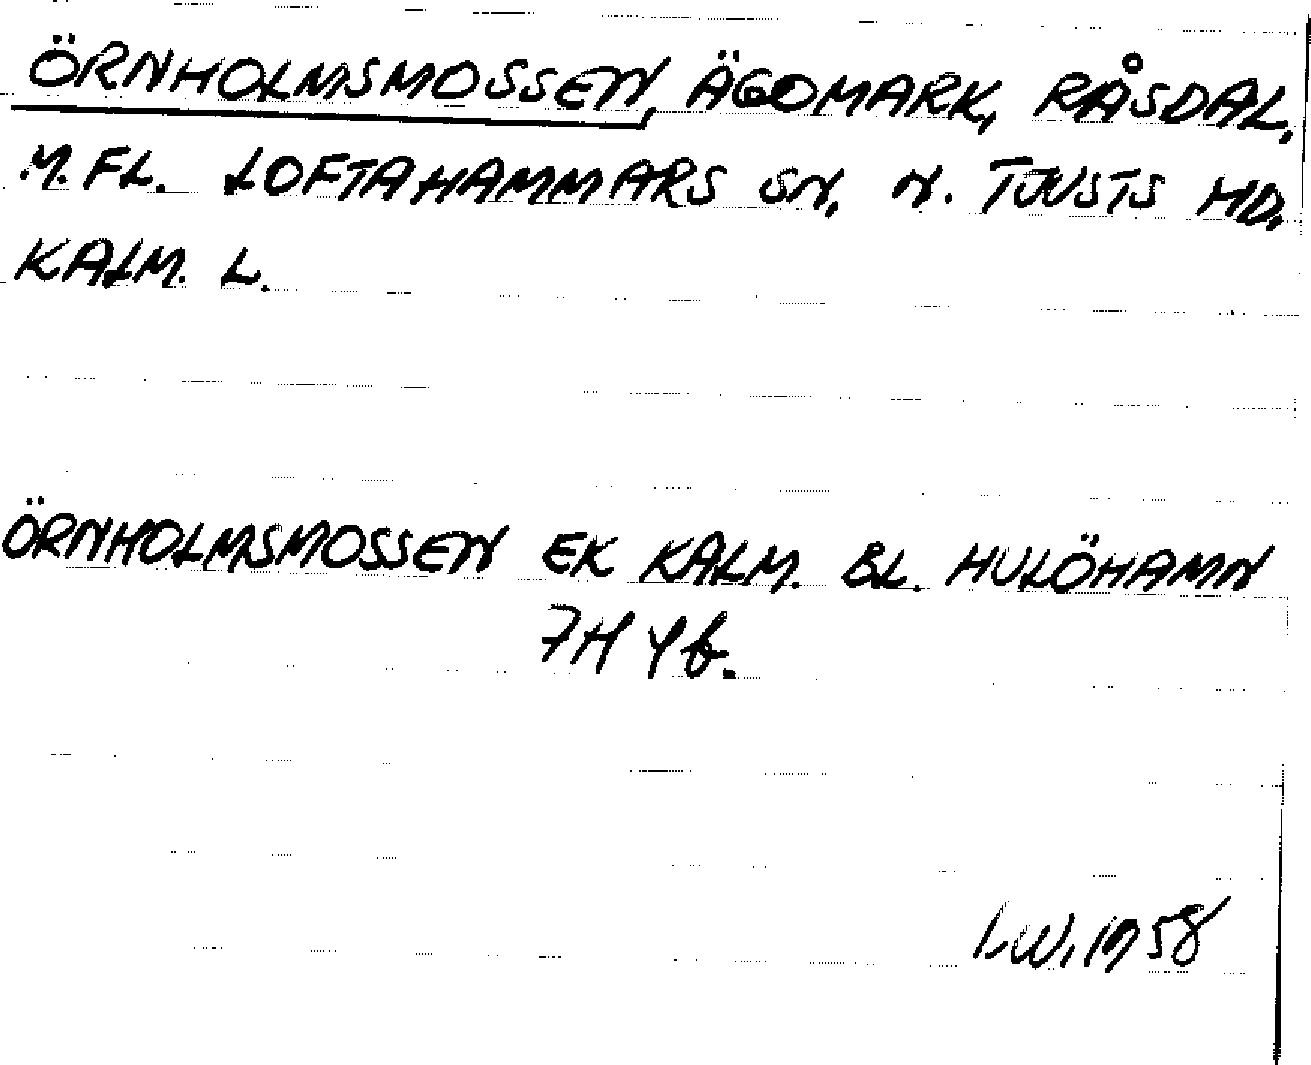 ÖRNHOLMSMOSSEN, ÄGOMARK, RÅSDAL,
M.FL. LOFTAHAMMARS SN, N. TJUSTS HD,
KALM. L.
ÖRNHOLMSMOSSEN EK KALM. BL. HULÖHAMN
7H 4b.
LW, 1958